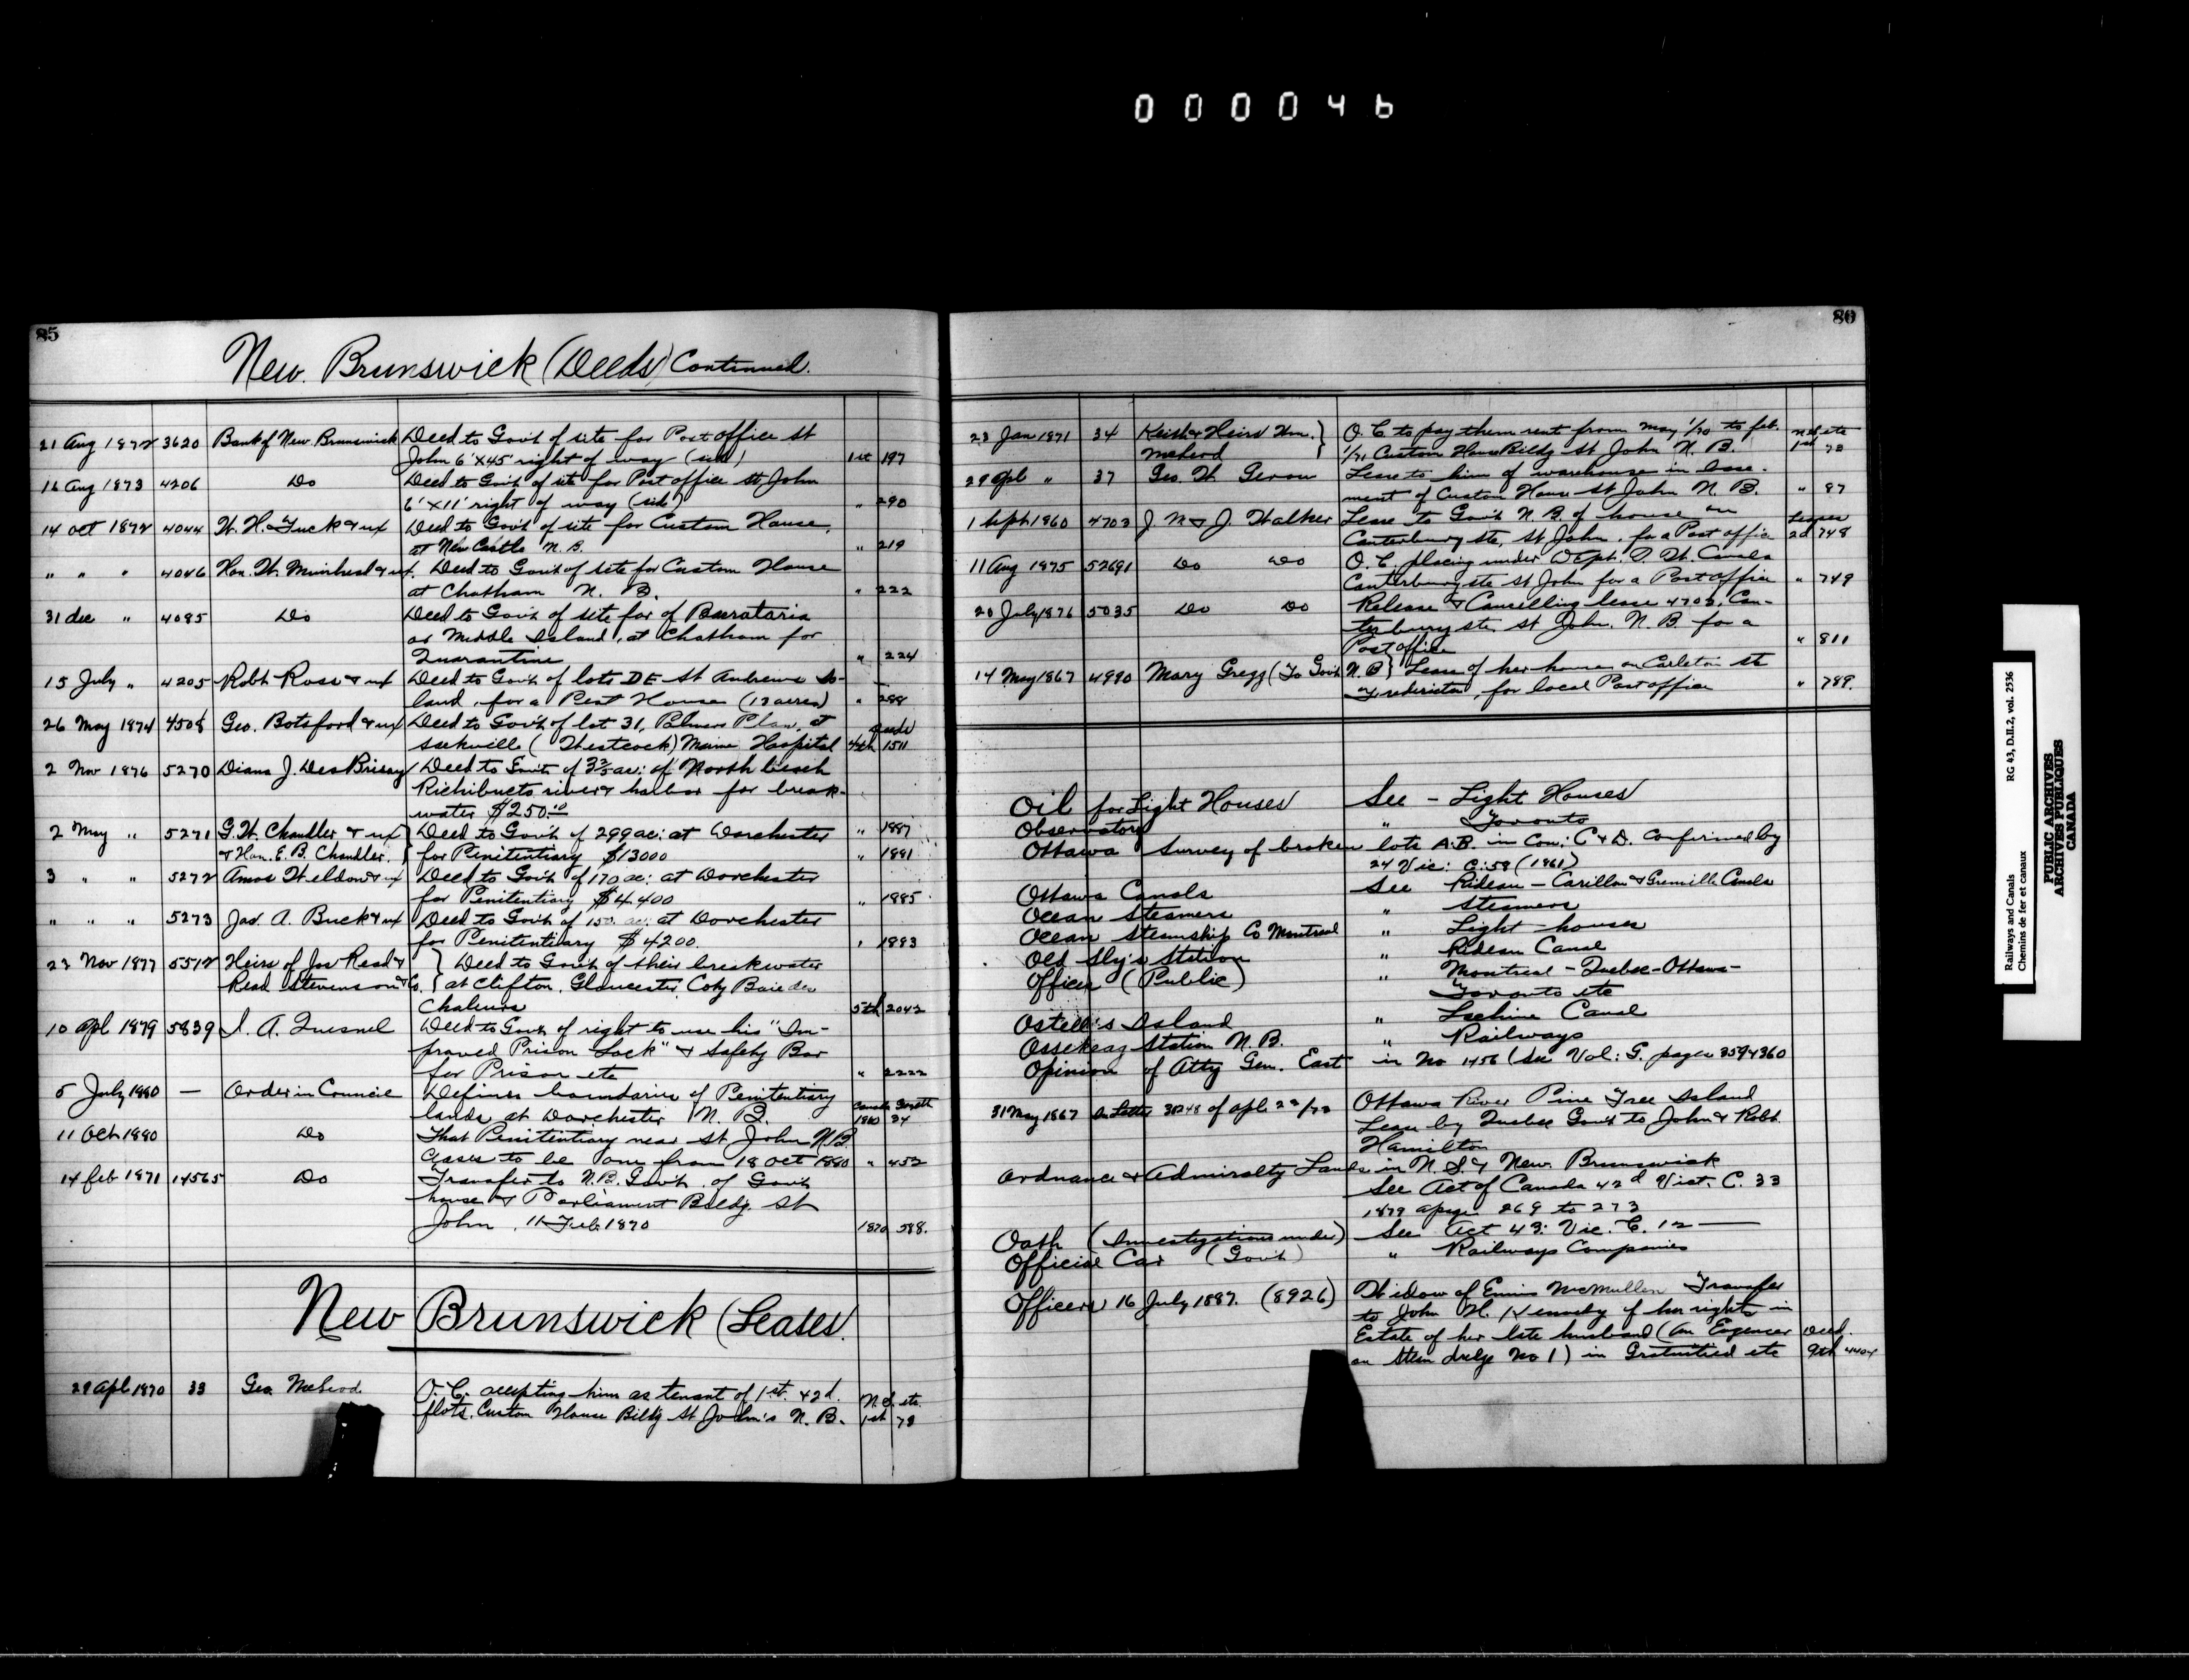 000046
85
New Brunswick (Deeds) Continued.
21 Aug 1872 3620 Bank of New Brunswick Deed to Gov't of site for Post office St
John 6' x 45' right of way (side) 1st 197
16 Aug 1873 4206 Do Deed to Gov't of site for Post office St John
6' x 11' right of way (side) " 290
14 Oct 1872 4044 W. H. Tuck & ux Deed to Gov't of site for Custom House,
at New Castle N. B. " 219
" " " 4046 Hon. W. Muirhead & ux. Deed to Gov't of site for Custom House
at Chatham N. B. " 222
31 dec " 4085 Do Deed to Gov't of site for of Barataria
or Middle Island, at Chatham for
Quarantine " 224
15 July " 4205 Robt Ross & ux Deed to Gov't of lots D E St Andrews Is-
land, for a Pest House (12 acres) " 288
26 May 1874 4508 Geo. Botsford & ux Deed to Gov't of lot 31, Palmers Plan, at
Sackville (Westcock) Marine Hospital 4th 1511
2 Nov 1876 5270 Diana J. DesBrisay Deed to Gov't of 3 3/5 ac: of North beach
Richibucto river & harbor for break-
water $250.00 " 1887
2 May " 5271 G. W. Chandler & ux Deed to Gov't of 299 ac: at Dorchester
& Hon. E. B. Chandler. for Penitentiary $13000 " 1881
3 " " 5272 Amos Weldon & ux Deed to Gov't of 170 ac: at Dorchester
for Penitentiary $4400 " 1885
" " " 5273 Jas. A. Buck & ux Deed to Gov't of 150 ac: at Dorchester
for Penitentiary $4200. " 1883
23 Nov 1877 5512 Heirs of Jos Read & Deed to Gov't of their breakwater
Read Stevenson & Co. at Clifton, Gloucester Coty Baie des
Chaleurs 5th 2042
10 Apl 1879 5839 I. A. Quesnel Deed to Gov't of right to use his "Im-
proved Prison Lock" & Safety Bar
for Prison etc " 2222
5 July 1880 — Order in Council Defines boundaries of Penitentiary
lands at Dorchester N. B. Canada Gazette 1880 24
11 Oct 1880 Do That Penitentiary near St John N.B.
Ceases to be one from 18 Oct 1880 " 452
14 feb 1871 14565 Do Transfer to N.B. Gov't of Govt
house & Parliament Bldg. St
John, 11 Feb 1870 1870 588.
New Brunswick (Leases.
29 Apl 1870 33 Geo McLeod O. C. accepting him as tenant of 1st. & 2d.
flats. Custom House Bildg St John's N. B. N.S. etc. 1st 78
80
23 Jan 1871 34 Keith & Heirs Wm. O. C. to pay them rent from May 1/70 to feb.
McLeod 1/71 Custom House Bildg St John N. B. N.S. etc 1st 78
29 Apl " 37 Geo. W. Gerow Lease to him of warehouse in base-
ment of Custom House St John N. B. " 87
1 Sept 1860 4703 J N & J. Walker Lease to Gov't N. B. of house on
Canterbury ste, St John, for a Post office Leases 2d 748
11 Aug 1875 52691 Do Do O. C. placing under Dept. P. W. Canada
Canterbury ste St John for a Post office " 749
20 July 1876 5035 Do Do Release & Cancelling lease 4703, Can-
terbury ste, St John, N. B. for a
Post office " 811
14 May 1867 4990 Mary Gregg (To Govt N. B) Lease of her house on Carleton st
Fredericton, for local Post office " 789.
Oil for Light Houses See - Light Houses
Observatory " Toronto
Ottawa Survey of broken lots A.B. in Con: C & D. Confirmed by
24 Vic: C: 58 (1861)
Ottawa Canals See Rideau - Carillon & Grenville Canals
Ocean Steamers " Steamers
Ocean Steamship Co Montreal " Light houses
Old Sly's Station " Rideau Canal
Offices (Public) " Montreal - Quebec - Ottawa -
Toronto etc
Ostell's Island " Lachine Canal
Ossekeag Station N. B. " Railways
Opinion of Atty Gen. East in No 1456 (see Vol: G. pages 359 & 360
31 May 1867 In Letter 38248 of Apl 23/73 Ottawa River Pine Tree Island
Lease by Quebec Gov't to John & Robt.
Hamilton
Ordnance & Admiralty Lands in N. S. & New. Brunswick
See Act of Canada 42d Vict. C. 33
1879 pages 269 to 273
Oath (Investigations under) See Act 43: Vic. C. 12 —
Official Car (Govt) " Railways Companies
Officers 16 July 1887. (8926) Widow of Ennis McMullen Transfer
to John H. Kennedy of her rights in
Estate of her late husband (An Engineer
on Steam dredge No 1) in Gratuities etc Deed. 9th 4404
Railways and Canals RG 43, D.II.2, vol. 2536
Chemins de fer et canaux
PUBLIC ARCHIVES
ARCHIVES PUBLIQUES
CANADA